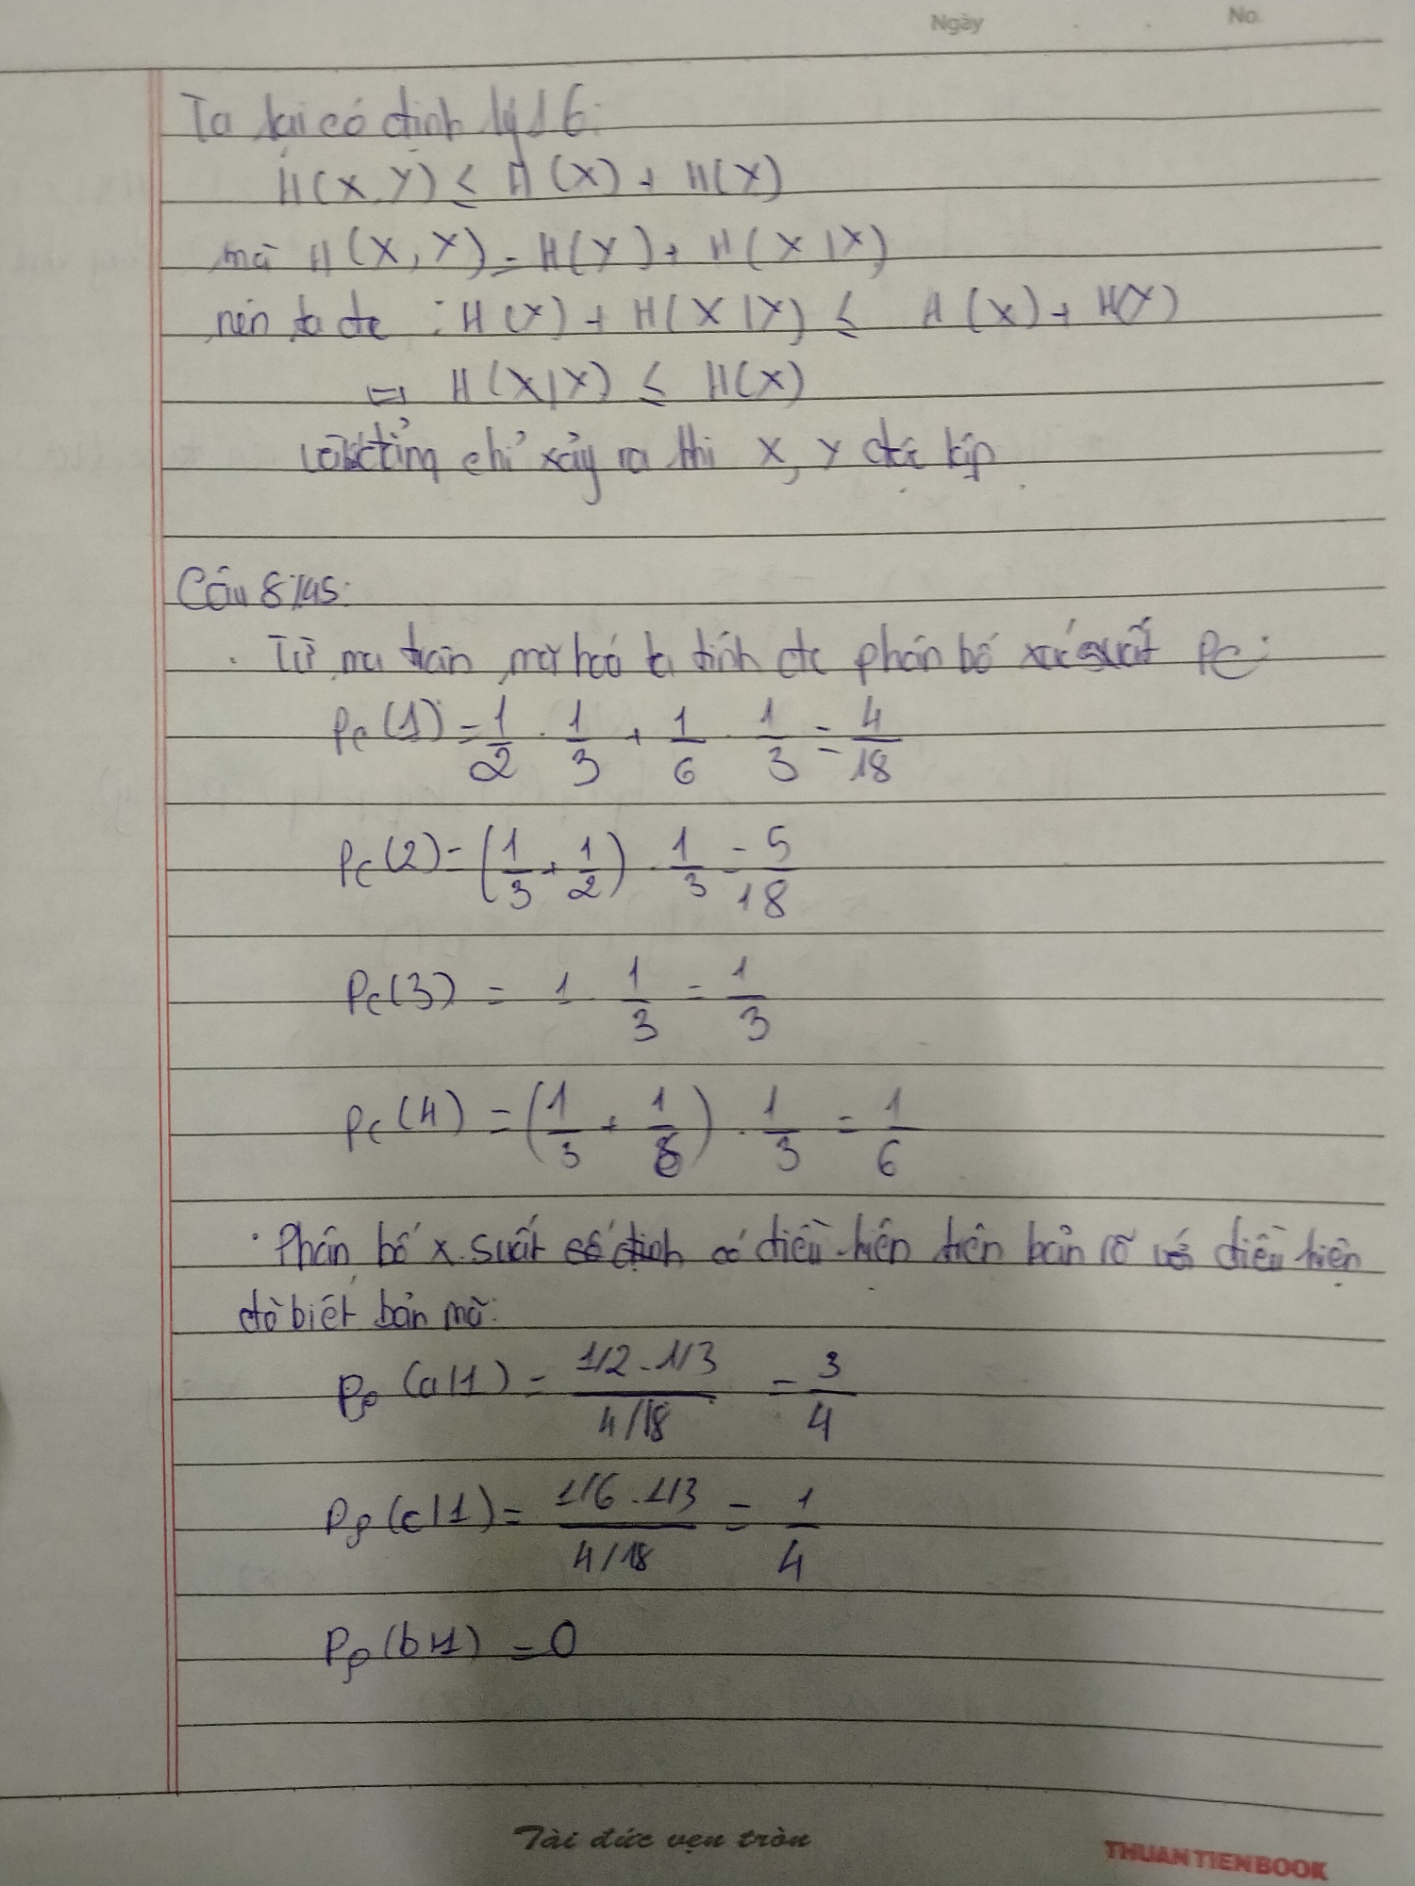 Ngày No.
Ta lại có định lý 1.6:
H(X,Y) ≤ H(X) + H(Y)
mà H(X,Y) = H(Y) + H(X|Y)
nên ta đc : H(Y) + H(X|Y) ≤ H(X) + H(Y)
⇒ H(X|Y) ≤ H(X)
chỉ xảy ra khi X, Y độc lập
Câu 8
. Từ ma trận mã hoá ta tính đc phân bố xác suất PC:
PC(1) = 1/2 . 1/3 + 1/6 . 1/3 = 4/18
PC(2) = (1/3 + 1/2) . 1/3 = 5/18
PC(3) = 1 . 1/3 = 1/3
PC(4) = (1/3 + 1/6) . 1/3 = 1/6
. Phân bố x.suất có điều kiện trên bản rõ với điều kiện
đã biết bản mã:
Pp(a|1) = (1/2 . 1/3)/(4/18) = 3/4
Pp(c|1) = (1/6 . 1/3)/(4/18) = 1/4
Pp(b|1) = 0
Tài đức vẹn tròn
THUAN TIEN BOOK